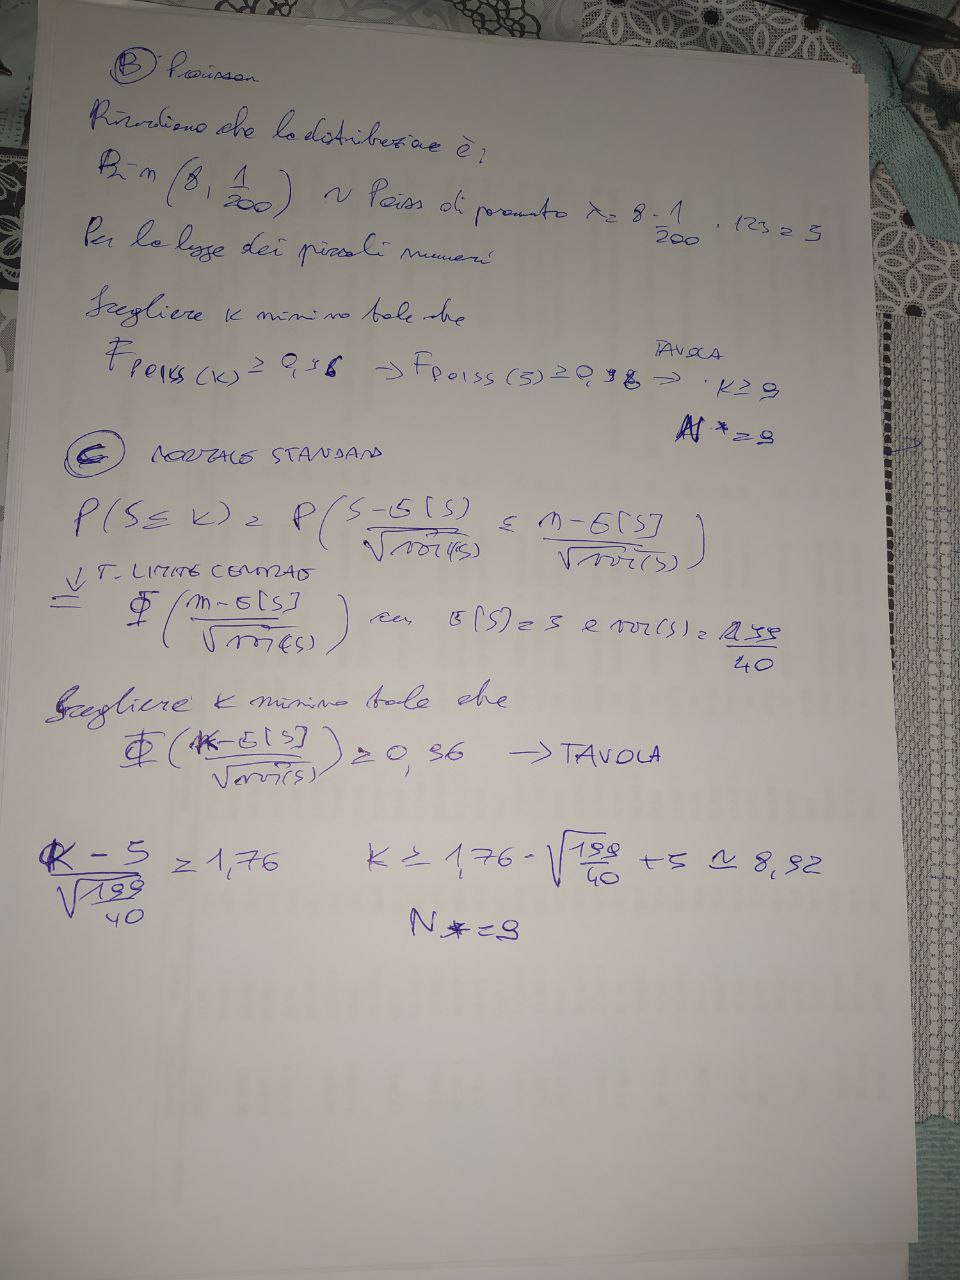 B Poisson
Ricordiamo che la distribuzione è:
Bin (8, 1/200) ~ Poiss di parametro λ = 8 · 1/200 · 125 = 5
Per la legge dei piccoli numeri
Scegliere K minimo tale che
F Poiss (K) ≥ 0,96 → F Poiss (5) ≥ 0,96 → TAVOLA · K ≥ 9
N* = 9
C NORMALE STANDARD
P(S ≤ K) = P( (S - E[S]) / √var(S) ≤ (n - E[S]) / √var(S) )
↓ T. LIMITE CENTRALE
= Φ( (n - E[S]) / √var(S) ) con E[S] = 5 e var(S) = 199/40
Scegliere K minimo tale che
Φ( (K - E[S]) / √var(S) ) ≥ 0,96 → TAVOLA
(K - 5) / √(199/40) ≥ 1,76 K ≥ 1,76 · √(199/40) + 5 ≃ 8,92
N* = 9